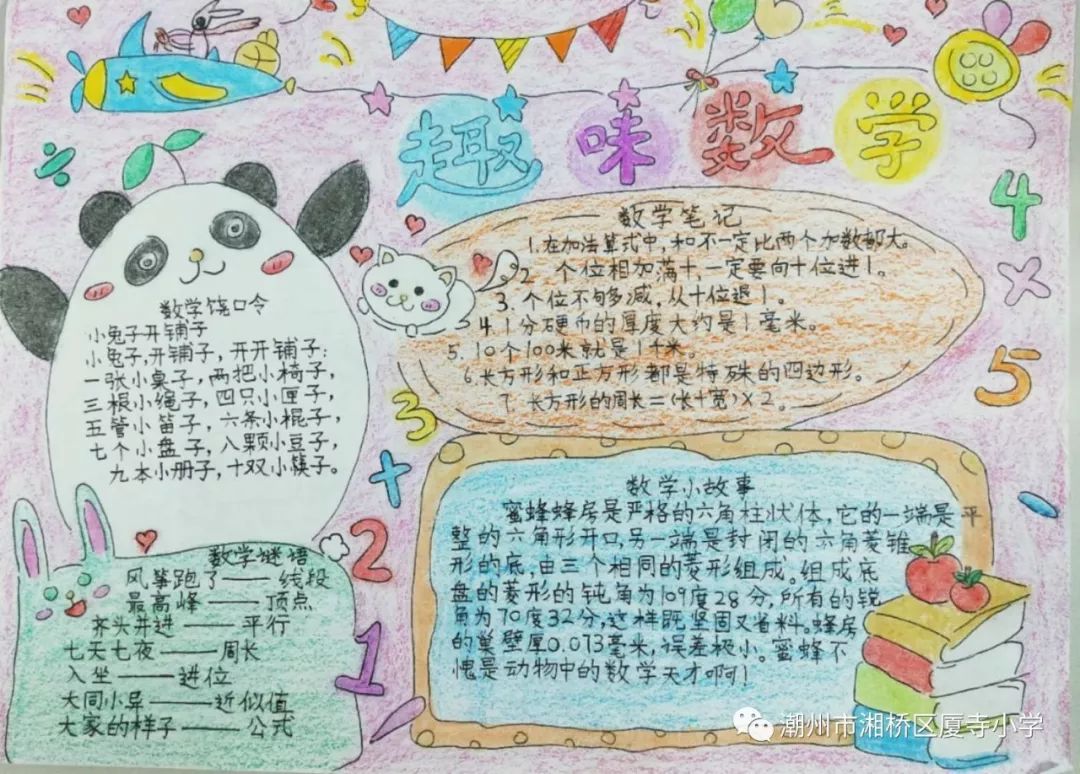 趣味数学
数学饶口令
小兔子开铺子
小兔子,开铺子,开开铺子:
一张小桌子,两把小椅子,
三根小绳子,四只小匣子,
五管小笛子,六条小棍子,
七个小盘子,八颗小豆子,
九本小册子,十双小筷子。
数学笔记
1.在加法算式中,和不一定比两个加数都大。
2. 个位相加满十,一定要向十位进1。
3. 个位不够多减,从十位退1。
4 1分硬币的厚度大约是1毫米。
5. 10个100米就是1千米。
6.长方形和正方形都是特殊的四边形。
7. 长方形的周长=(长+宽)×2。
数学小故事
蜜蜂蜂房是严格的六角柱状体,它的一端是平
整的六角形开口,另一端是封闭的六角菱锥
形的底,由三个相同的菱形组成。组成底
盘的菱形的钝角为109度28分,所有的锐
角为70度32分,这样既坚固又省料。蜂房
的巢壁厚0.073毫米,误差极小。蜜蜂不
愧是动物中的数学天才啊!
数学谜语
风筝跑了——线段
最高峰——顶点
齐头并进——平行
七天七夜——周长
入坐——进位
大同小异——近似值
大家的样子——公式
÷
4
×
5
3
+
2
1
-
潮州市湘桥区厦寺小学